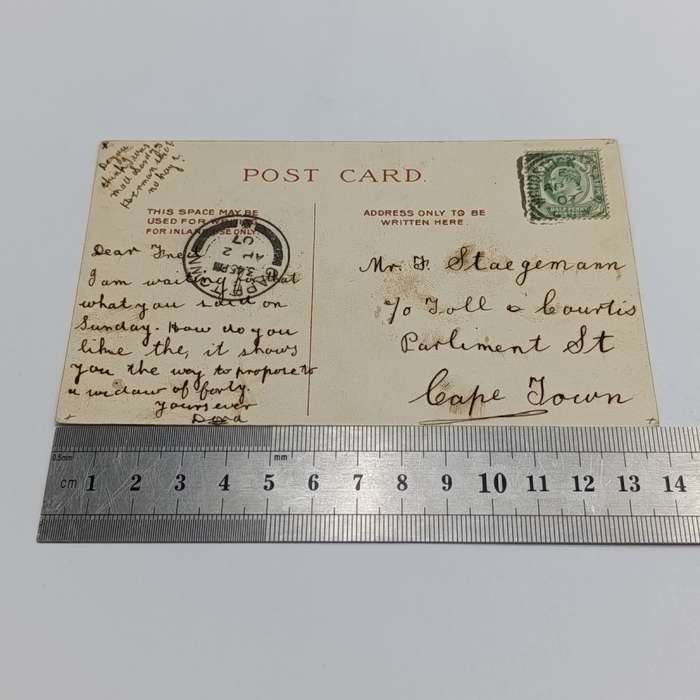 Do you
think
Herman
no hay
POST CARD.
THIS SPACE MAY BE
USED FOR
FOR INLAND USE ONLY
ADDRESS ONLY TO BE
WRITTEN HERE.
Dear
I am waiting for that
what you said on
Sunday. How do you
likme the, it shows
you the way to propose to
a widaw of forty.
Yours ever
CAPE TOWN
3.45 PM
2
07
Mr. F. Staegemann
c/o Toll & Courtis
Parliment St
Cape Town
0.5mm
mm
cm 1 2 3 4 5 6 7 8 9 10 11 12 13 14